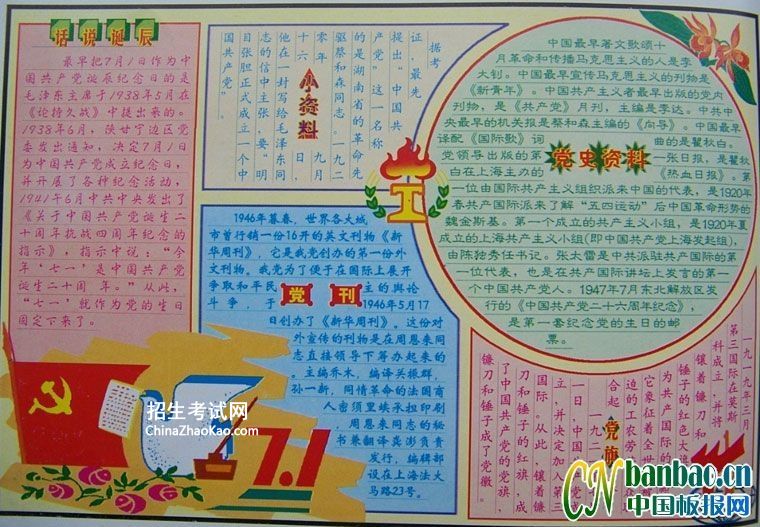 话说诞辰
最早把7月1日作为中
国共产党诞辰纪念日的是
毛泽东主席于1938年5月在
《论持久战》中提出来的。
1938年6月，陕甘宁边区党
委发出通知，决定7月1日
为中国共产党成立纪念日，
并开展了各种纪念活动，
1941年6月中共中央发出了
《关于中国共产党诞生二
十周年抗战四周年纪念的
指示》，指示中说：“今
年‘七一’是中国共产党
诞生二十周年。”从此，
“七一”就作为党的生日
固定下来了。
小资料
据考
证，最先
提出“中国共
产党”这一名称
的是湖南省的革命先
驱蔡和森同志。一九二
零年九月
十六日，
他在一封给毛泽东同
志的信中主张，要“明
目张胆正式成立一个中
国共产党”。
党史资料
中国最早著文歌颂十
月革命和传播马克思主义的人是李
大钊。中国最早宣传马克思主义的刊物是
《新青年》。中国共产主义者最早出版的党内
刊物，是《共产党》月刊，主编是李达。中共中
央最早的机关报是蔡和森主编的《向导》。中国最早
译配《国际歌》词曲的是瞿秋白。
党领导出版的第一张日报，是瞿秋
白在上海主办的《热血日报》。第
一位由国际共产主义组织派来中国的代表，是1920年
春共产国际派来了解“五四运动”后中国革命形势的
魏金斯基。第一个成立的共产主义小组，是1920年夏
成立的上海共产主义小组(即中国共产党上海发起组)，
由陈独秀任书记。张太雷是中共派驻共产国际的第
一位代表，也是在共产国际讲坛上发言的第一
个中国共产党人。1947年7月东北解放区发
行的《中国共产党二十六周年纪念》，
是第一套纪念党的生日的邮
票。
党刊
1946年暮春，世界各大城
市首行销一份16开的英文刊物《新
华周刊》，它是我党创办的第一份外
文刊物。我党为了便于在国际上展开
争取和平民主的舆论
斗争，于1946年5月17
日创办了《新华周刊》。这份对
外宣传的刊物是在周恩来同
志直接领导下筹办起来的
。主编乔木，编译关振群，
孙一新，同情革命的法国商
人密须里埃承担印刷
，周恩来同志的秘
书兼翻译龚澎负责
发行，编辑部
设在上海法大
马路23号。
党旗
一九一九年三月，
第三国际在莫斯
科成立，并将
镶着镰刀和
锤子的红色大旗
为共产国际的
它象征着全世
边的工农劳
合起
一九二
一日，中国
立，并决定加入第三
国际。从此，镶着镰
刀和锤子的红旗，成
了中国共产党的党旗，
镰刀和锤子成了党徽。
7.1
招生考试网
ChinaZhaoKao.com
CNbanbao.cn
中国板报网